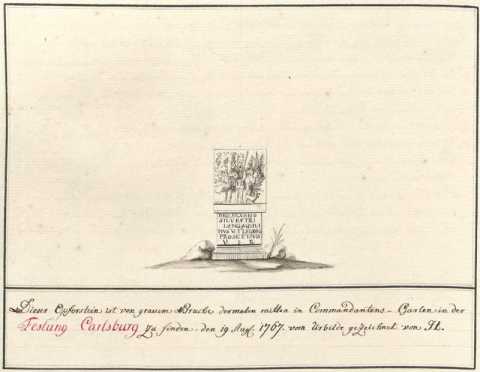 DEO MAGNO
SILVESTRI
PRO SE ET SVIS
Dieser Opferstein ist von grauem Bruche dermalen mitten in Commandantens-Garten in der
Festung Carlsburg zu finden. den 19. Aug. 1767. vom Urbilde gezeichnet von